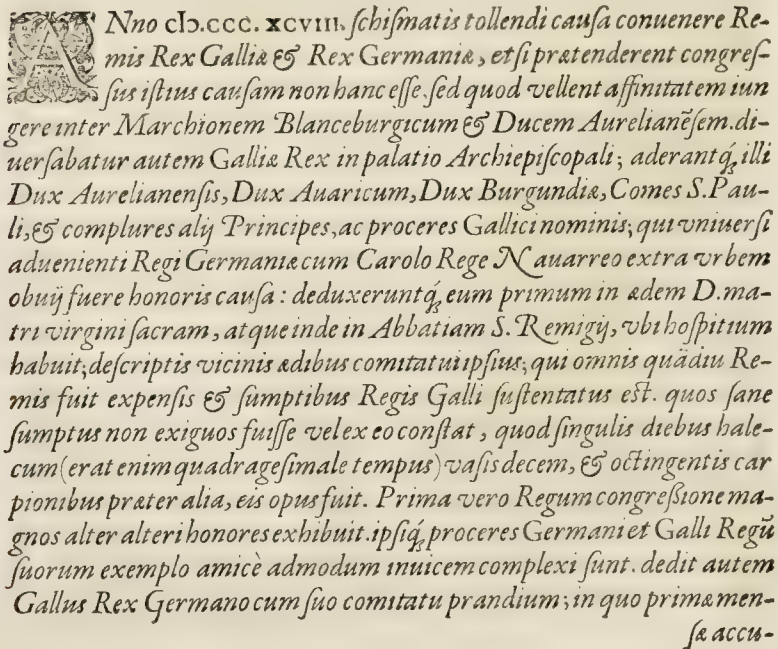 ANno cIↄ.ccc. xcviii. ſchiſmatis tollendi cauſa conuenere Re-
mis Rex Galliæ & Rex Germaniæ, etſi prætenderent congreſ-
ſus iſtius cauſam non hanc eſſe. ſed quod vellent affinitatem iun
gere inter Marchionem Blanceburgicum & Ducem Aurelianẽſem. di-
uerſabatur autem Galliæ Rex in palatio Archiepiſcopali; aderantq́; illi
Dux Aurelianenſis, Dux Auaricum, Dux Burgundiæ, Comes S. Pau-
li, & complures alij Principes, ac proceres Gallici nominis; qui vniuerſi
aduenienti Regi Germaniæ cum Carolo Rege Nauarreo extra vrbem
obuij fuere honoris cauſa: deduxeruntq́; eum primum in ædem D. ma-
tri virgini ſacram, atque inde in Abbatiam S. Remigij, vbi hoſpitium
habuit, deſcriptis vicinis ædibus comitatui ipſius; qui omnis quãdiu Re-
mis fuit expenſis & ſumptibus Regis Galli ſuſtentatus eſt. quos ſane
ſumptus non exiguos fuiſſe vel ex eo conſtat, quod ſingulis diebus hale-
cum (erat enim quadrageſimale tempus) vaſis decem, & octingentis car
pionibus præter alia, eis opus fuit. Prima vero Regum congreſſione ma-
gnos alter alteri honores exhibuit. ipſiq́; proceres Germani et Galli Regũ
ſuorum exemplo amicè admodum inuicem complexi ſunt. dedit autem
Gallus Rex Germano cum ſuo comitatu prandium; in quo primæ men-
ſæ accu-